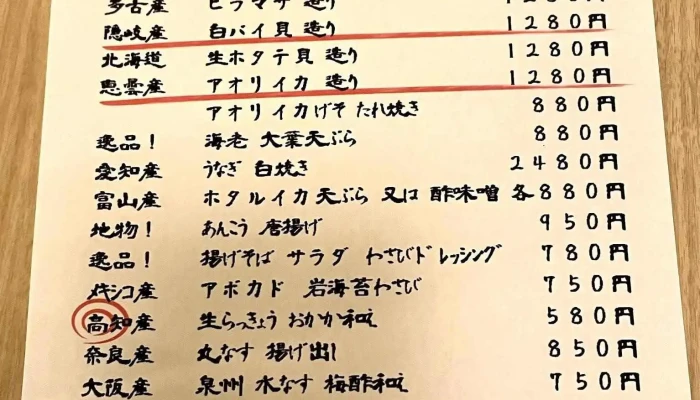 多古産 ヒラマサ 造り 1280円
隠岐産 白バイ貝 造り 1280円
北海道 生ホタテ貝 造り 1280円
恵曇産 アオリイカ 造り 1280円
アオリイカげそ たれ焼き 880円
逸品! 海老 大葉天ぷら 880円
愛知産 うなぎ 白焼き 2480円
富山産 ホタルイカ天ぷら 又は 酢味噌 各880円
地物! あんこう 唐揚げ 950円
逸品! 揚げそば サラダ わさびドレッシング 780円
メキシコ産 アボカド 岩海苔わさび 750円
高知産 生らっきょう おかか和え 580円
奈良産 丸なす 揚げ出し 850円
大阪産 泉州 水なす 梅酢和え 750円